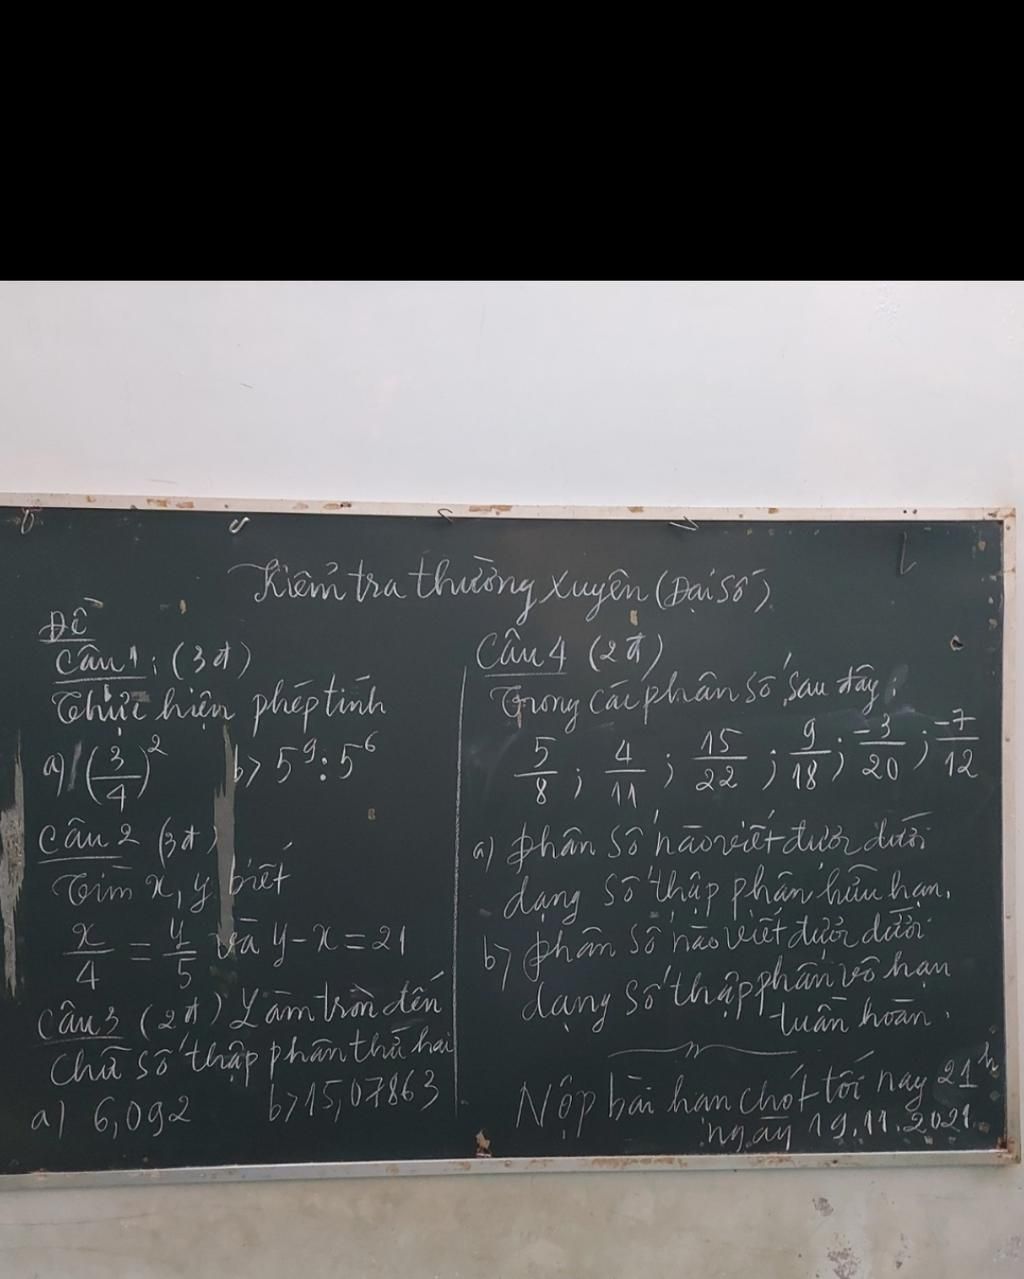 Kiểm tra thường xuyên (Đại số)
Đề
Câu 1: (3đ)
Thực hiện phép tính
a) (3/4)² b) 5⁹ : 5⁶
Câu 2 (3đ)
Tìm x, y biết
x/4 = y/5 và y - x = 21
Câu 3 (2đ) Làm tròn đến
chữ số thập phân thứ hai
a) 6,092 b) 15,07863
Câu 4 (2đ)
Trong các phân số sau đây:
5/8 ; 4/11 ; 15/22 ; 9/18 ; -3/20 ; -7/12
a) phân số nào viết được dưới
dạng số thập phân hữu hạn.
b) phân số nào viết được dưới
dạng số thập phân vô hạn
tuần hoàn.
Nộp bài hạn chót tối nay 21h
ngày 19.11.2021.